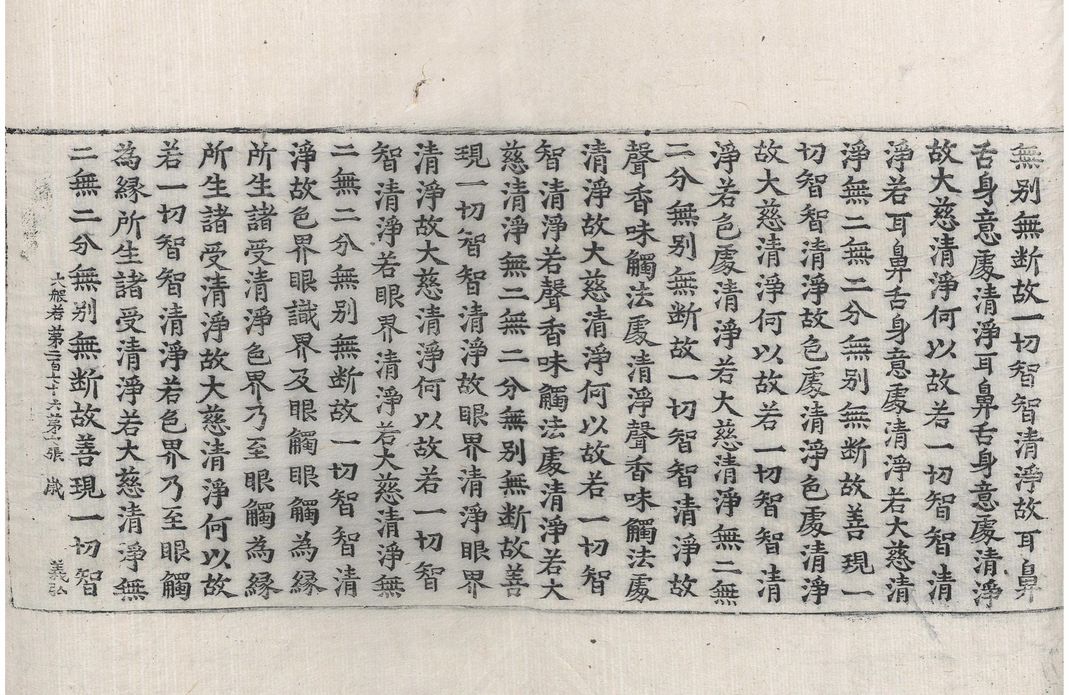 無別無斷故一切智智清淨故耳鼻
舌身意處清淨耳鼻舌身意處清淨
故大慈清淨何以故若一切智智清
淨若耳鼻舌身意處清淨若大慈清
淨無二無二分無別無斷故善現一
切智智清淨故色處清淨色處清淨
故大慈清淨何以故若一切智智清
淨若色處清淨若大慈清淨無二無
二分無別無斷故一切智智清淨故
聲香味觸法處清淨聲香味觸法處
清淨故大慈清淨何以故若一切智
智清淨若聲香味觸法處清淨若大
慈清淨無二無二分無別無斷故善
現一切智智清淨故眼界清淨眼界
清淨故大慈清淨何以故若一切智
智清淨若眼界清淨若大慈清淨無
二無二分無別無斷故一切智智清
淨故色界眼識界及眼觸眼觸為緣
所生諸受清淨色界乃至眼觸為緣
所生諸受清淨故大慈清淨何以故
若一切智智清淨若色界乃至眼觸
為緣所生諸受清淨若大慈清淨無
二無二分無別無斷故善現一切智
大般若第二百六十六第張 歲 義